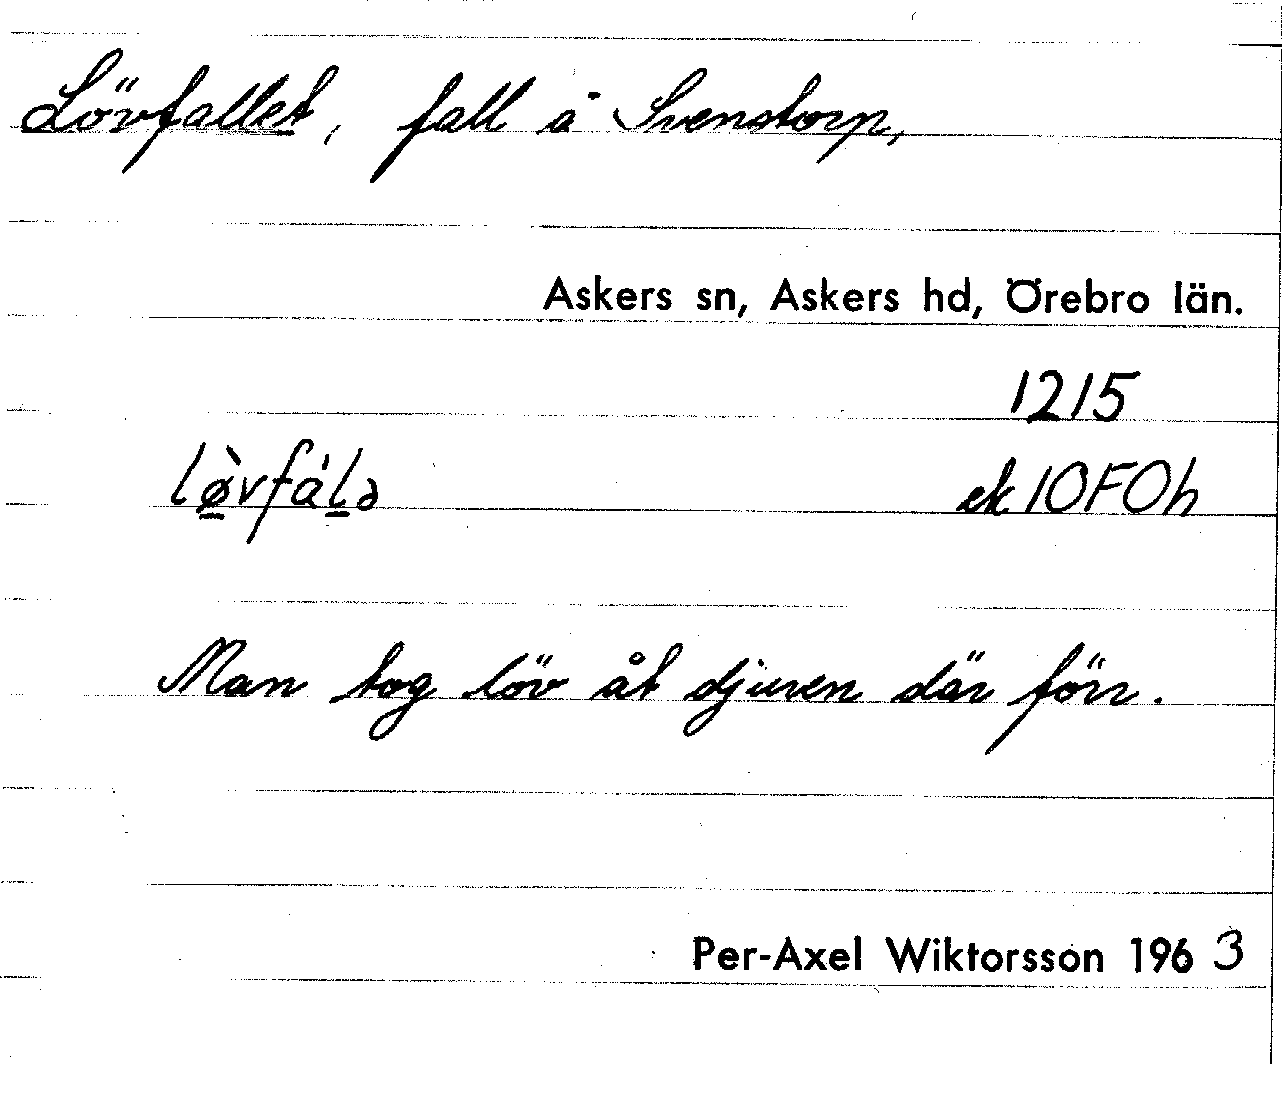 Lövfallet, fall å Svenstorp,
Askers sn, Askers hd, Örebro län.
1215
lø̱̀vfáḻə ek 10F0h
Man tog löv åt djuren där förr.
Per-Axel Wiktorsson 1963